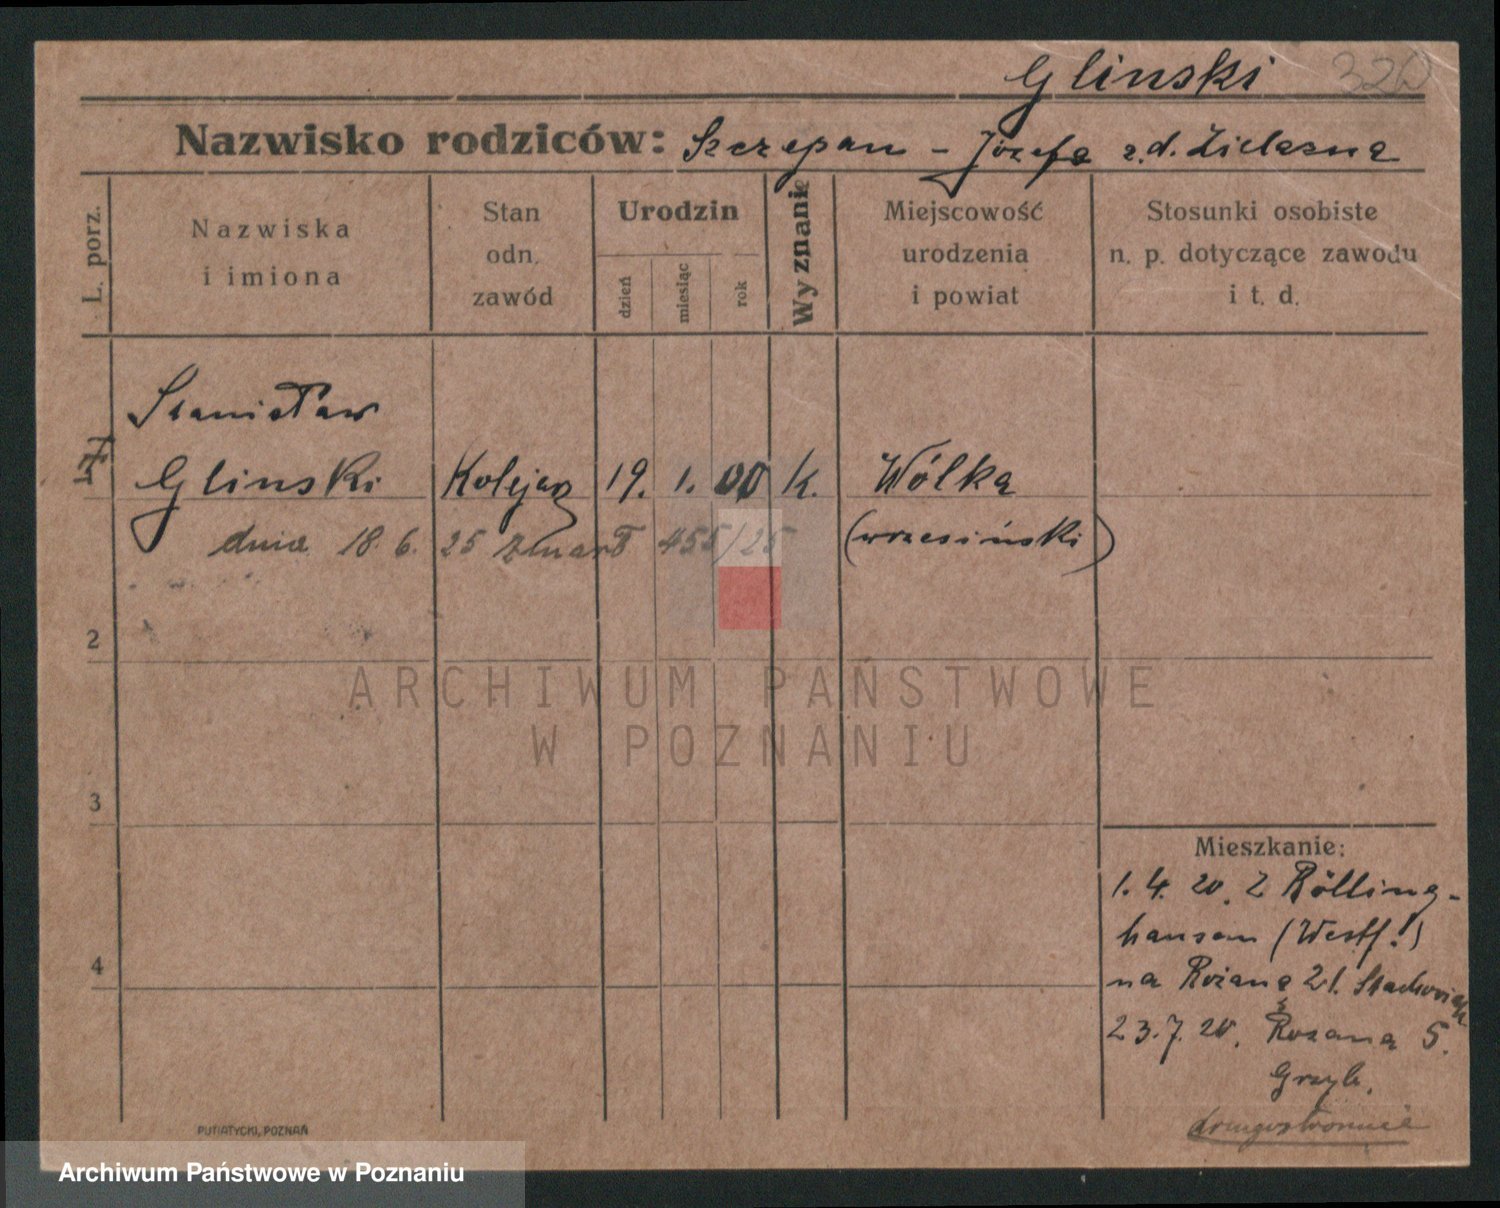 Glinski 320
Nazwisko rodziców: Szczepan - Józefa z.d. Żielasna
L. porz.
Nazwiska
i imiona
Stan
odn.
zawód
Urodzin
dzień
miesiąc
rok
Wyznanie
Miejscowość
urodzenia
i powiat
Stosunki osobiste
n. p. dotyczące zawodu
i t. d.
Stanisław
Glinski Kolejarz 19. 1. 00 k. Wólka
dnia 18. 6. 25 zmarł 455/25 (wrzesiński)
2
ARCHIWUM PAŃSTWOWE
W POZNANIU
3
4
Mieszkanie:
1. 4. 20. Z Rölling-
hausen (Westf.!)
na Rożaną 21. Stachowiak
23. 7. 20. Rożana 5.
Grzyb.
drugostronnie
PUTIATYCKI, POZNAŃ
Archiwum Państwowe w Poznaniu